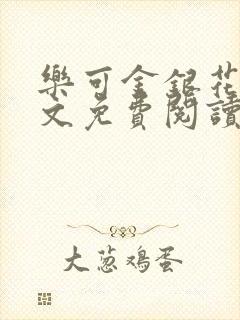 樂可金銀花
文免費閱讀
大葱鸡蛋